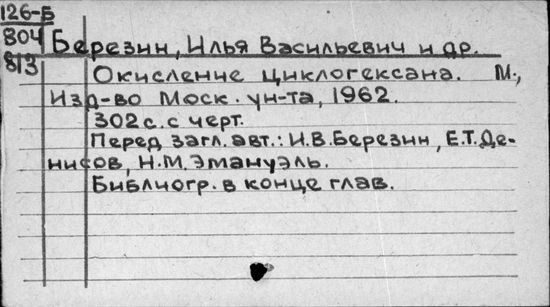 126-Б
804 Березин, Илья Васильевич и др.
813
Окисление циклогексана. М.,
Изд-во Моск. ун-та, 1962.
302 с. с черт.
Перед загл. авт.: И.В.Березин, Е.Т.Де-
нисов, Н.М.Эмануэль.
Библиогр. в конце глав.